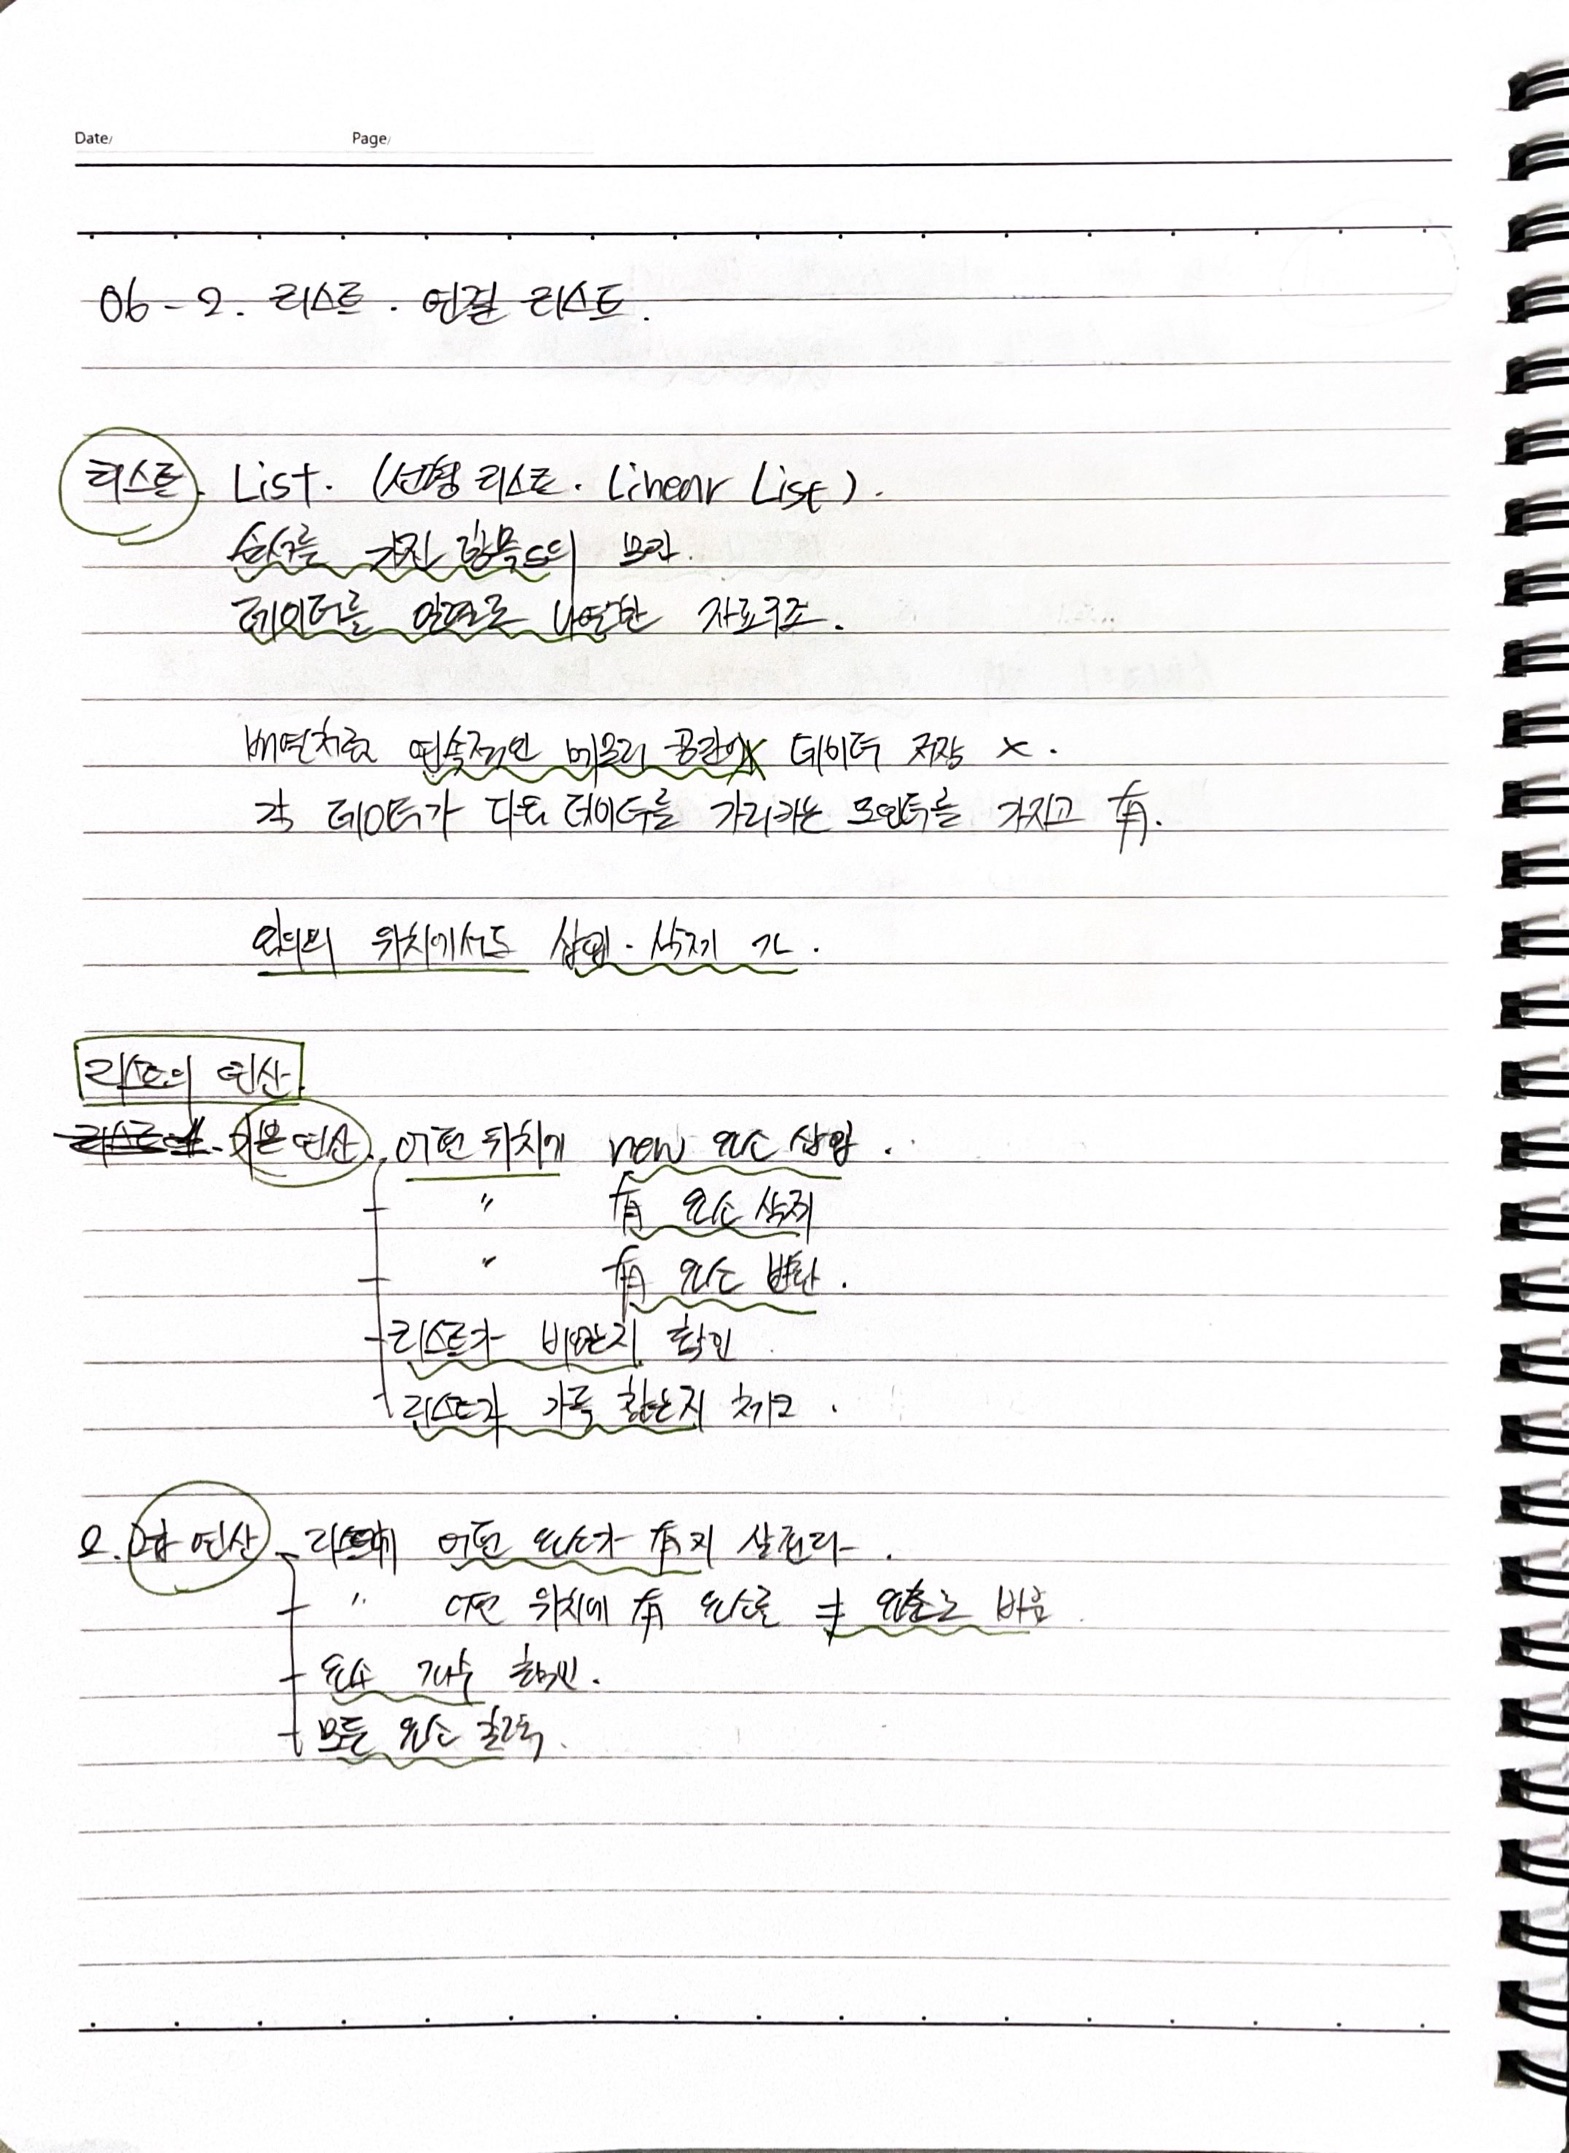 Date/ Page/
06-2. 리스트. 연결 리스트.
리스트. List. (선형 리스트. Linear List).
순서를 가진 항목들의 모임.
데이터를 일렬로 나열한 자료구조.
배열처럼 연속적인 메모리 공간에 데이터 저장 X.
각 데이터가 다른 데이터를 가리키는 포인터를 가지고 有.
임의의 위치에서도 삽입. 삭제 가.
리스트의 연산.
기본 연산. 어떤 위치에 new 요소 삽입.
〃 有 요소 삭제
〃 有 요소 반환.
리스트가 비었는지 확인
리스트가 가득 찼는지 체크.
연산 리스트에 어떤 요소가 有지 살핀다.
〃 어떤 위치에 有 요소를 ≠ 요소로 바꿈.
요소 개수 확인.
모든 요소 출력.